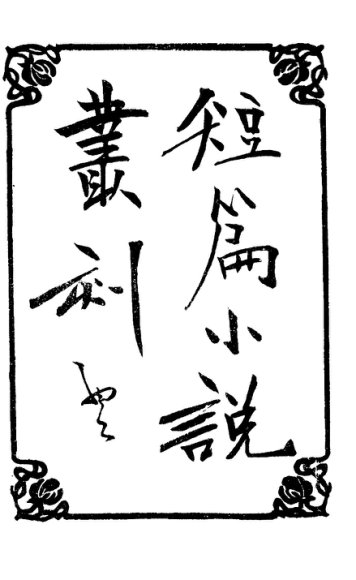 短篇小説
叢刻